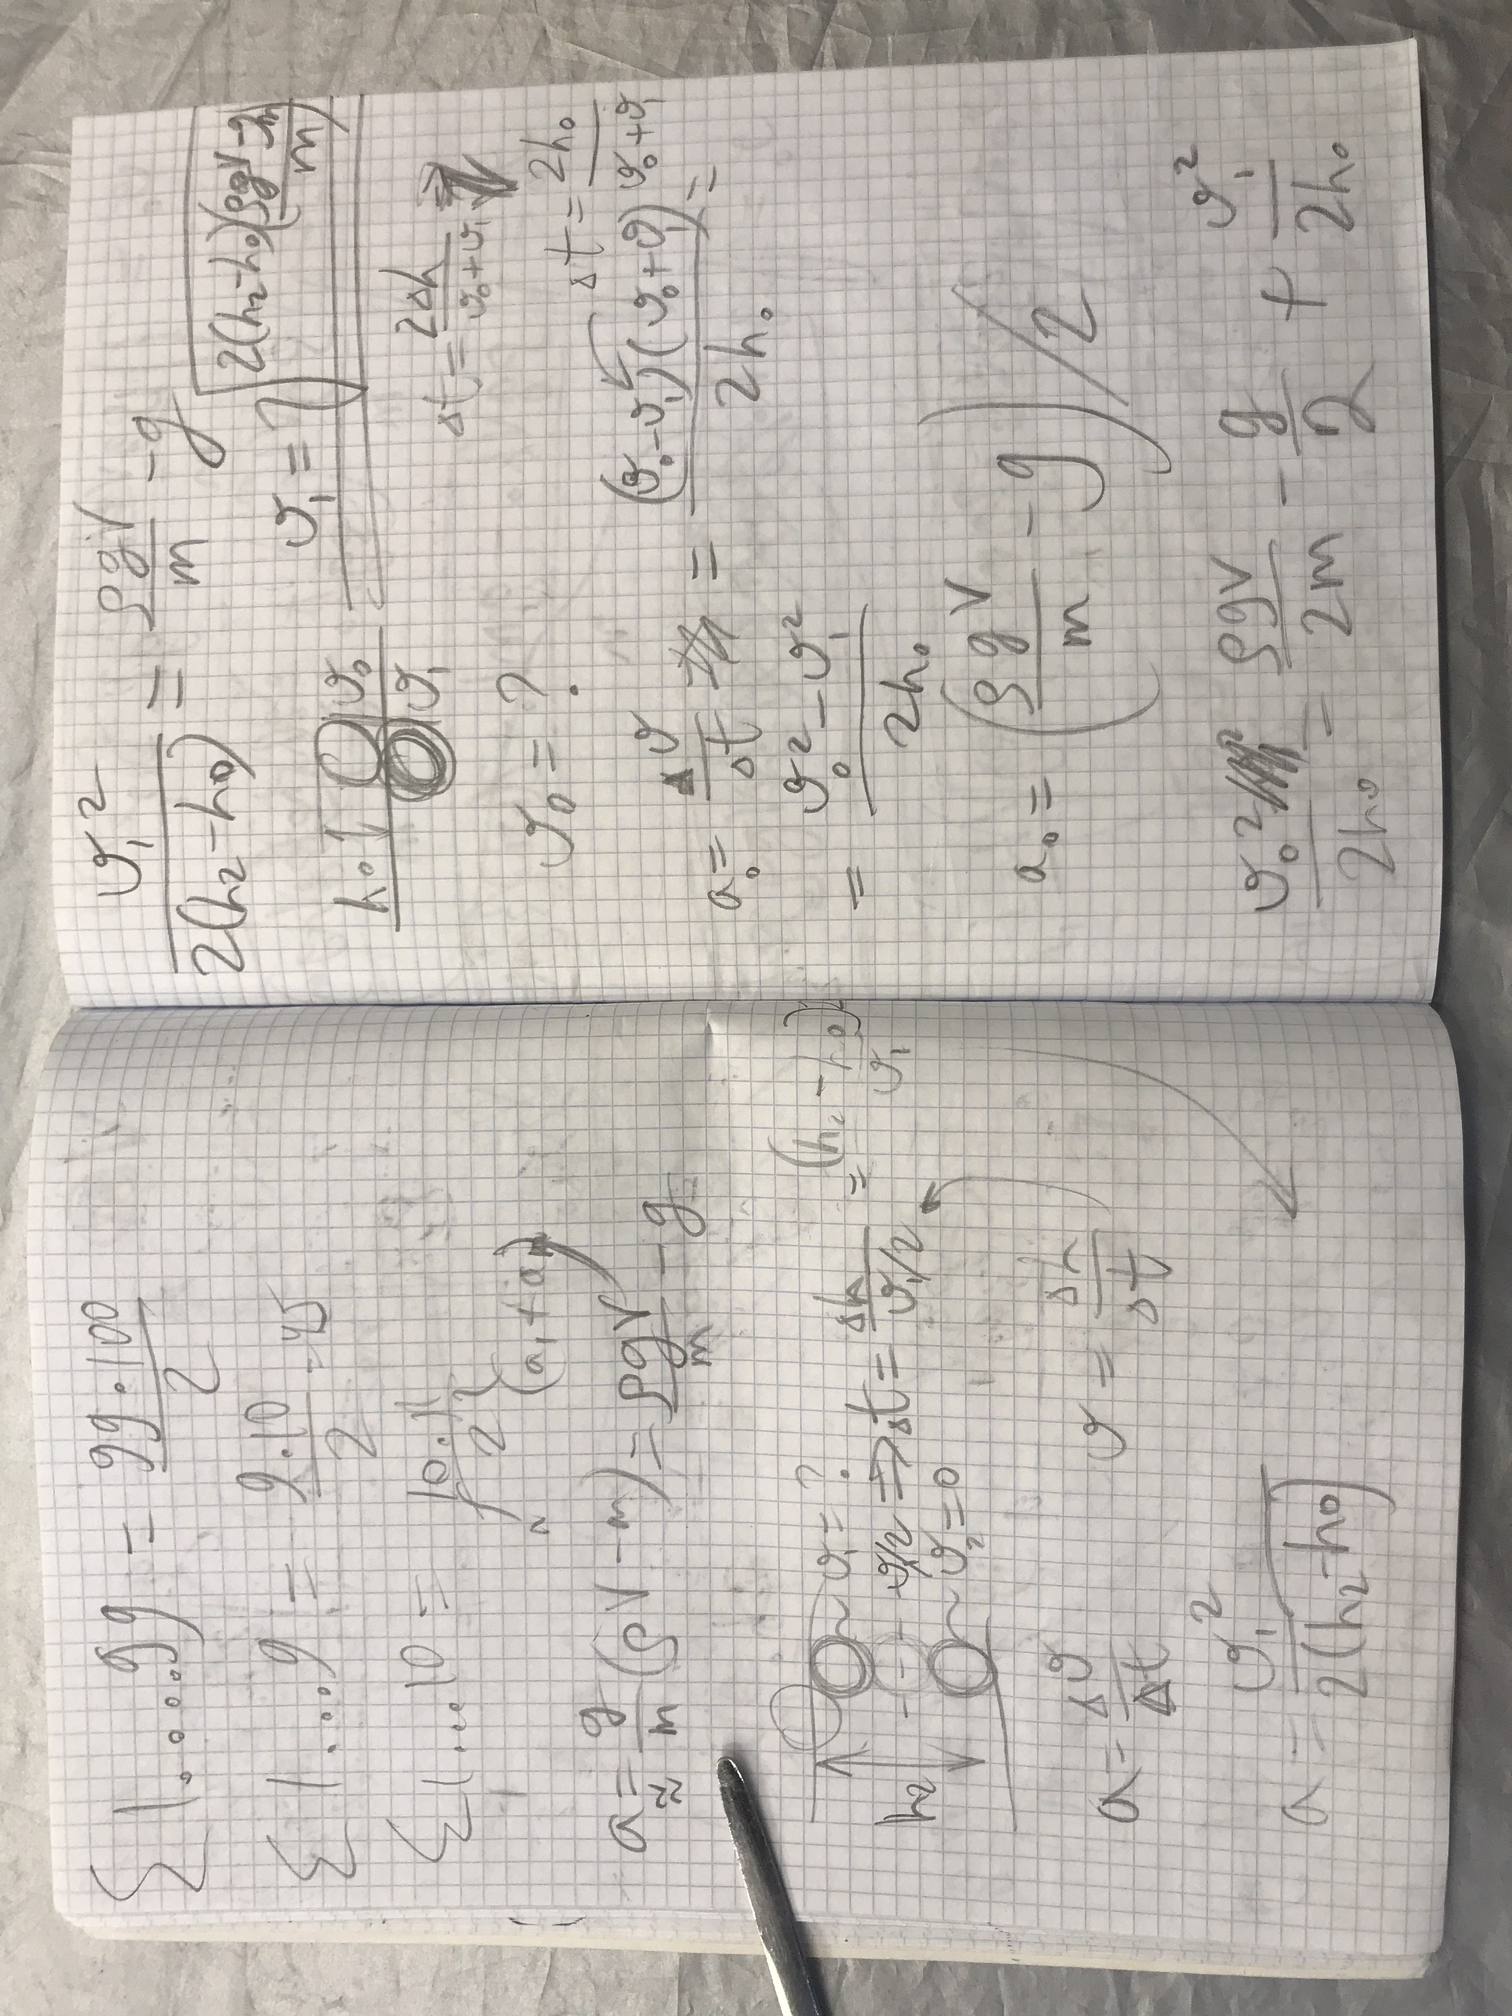 Σ 1.....99 = 99·100/2
Σ 1...9 = 9·10/2 = 45
Σ 1...10 = 10·11/2
(a₁+aₙ)
a₂ = g/m (ρV-m) = ρgV/m - g
v₁=?
h₂
v₁/2 => Δt = Δh/(v₁/2) = (h₂-h₀)2/v₁
v₂=0
a = Δv/Δt
v = Δh/Δt
a = v₁²/(2(h₂-h₀))
v₁²/(2(h₂-h₀)) = ρgV/m - g
v₁ = √(2(h₂-h₀)(ρgV-gm)/m)
h₀ v₀
v₁
Δt = 2Δh/(v₀+v₁)
v₀ = ?
Δt = 2h₀/(v₀+v₁)
a₀ = Δv/Δt = (v₀-v₁)(v₀+v₁)/2h₀ =
= (v₀²-v₁²)/2h₀
a₀ = (ρgV/m - g)/2
v₀²/2h₀ = ρgV/2m - g/2 + v₁²/2h₀